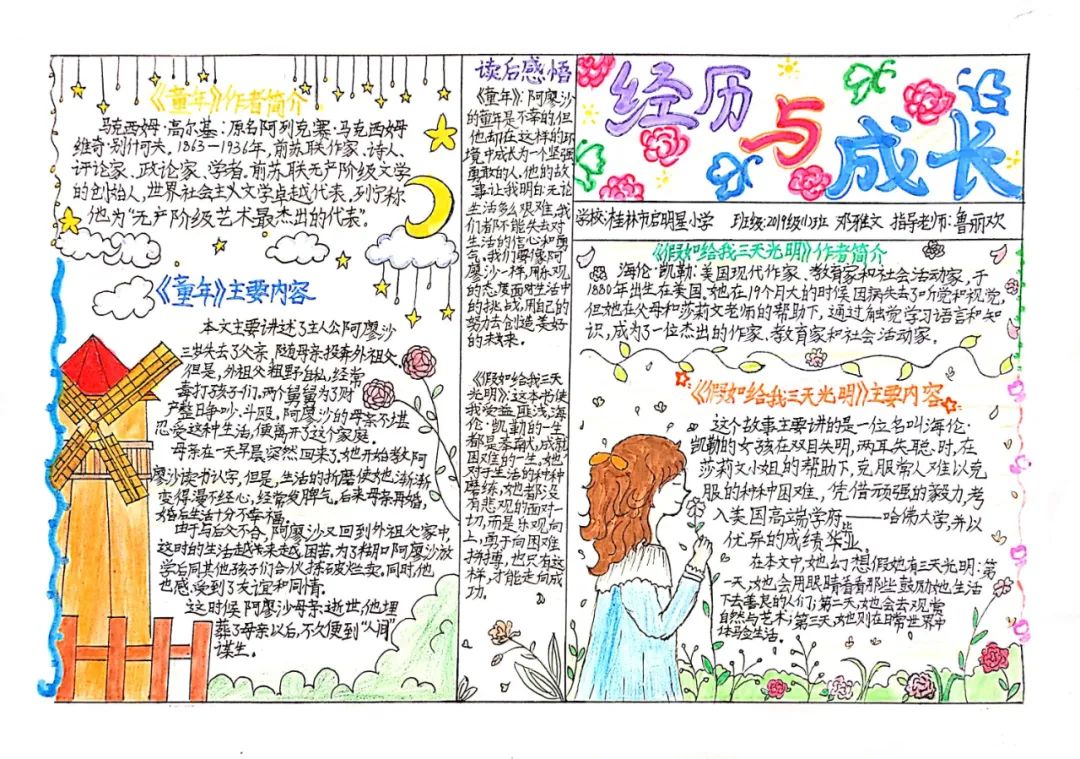 经历与成长
学校:桂林市启明星小学 班级:2019级(1)班 邓雅文 指导老师:鲁丽欢
《童年》作者简介
马克西姆·高尔基:原名阿列克塞·马克西姆
维奇·别什可夫,1863—1936年,前苏联作家、诗人、
评论家、政论家、学者。前苏联无产阶级文学
的创始人,世界社会主义文学卓越代表。列宁称
他为“无产阶级艺术最杰出的代表”。
《童年》主要内容
本文主要讲述了主人公阿廖沙
三岁失去了父亲,随母亲投奔外祖父。
但是,外祖父粗野自私,经常
毒打孩子们,两个舅舅为了财
产整日争吵、斗殴,阿廖沙的母亲不堪
忍受这种生活,便离开了这个家庭。
母亲在一天早晨突然回来了,她开始教阿
廖沙读书认字,但是,生活的折磨使她渐渐
变得漫不经心,经常发脾气,后来母亲再婚,
婚后生活十分不幸福。
由于与后父不合,阿廖沙又回到外祖父家中,
这时的生活越来越困苦,为了糊口阿廖沙放
学后同其他孩子们合伙拣破烂卖,同时,他
也感受到了友谊和同情。
这时候阿廖沙母亲逝世,他埋
葬了母亲以后,不久便到“人间”
谋生。
读后感悟
《童年》:阿廖沙
的童年是不幸的,但
他却在这样的环
境中成长为一个坚强
勇敢的人,他的故
事让我明白:无论
生活多么艰难,我
们都不能失去对
生活的信心和勇
气。我们要像阿
廖沙一样,用乐观
的态度面对生活中
的挑战,用自己的
努力去创造美好
的未来。
《假如给我三天
光明》:这本书使
我受益匪浅,海
伦·凯勒的一生
都是奉献,成就
困难的一生。她
对于生活的种种
磨练,她都没
有悲观的面对一
切,而是乐观向
上,勇于向困难
拼搏,也只有这
样,才能走向成
功。
《假如给我三天光明》作者简介
海伦·凯勒:美国现代作家、教育家和社会活动家,于
1880年出生在美国。她在19个月大的时候因病失去了听觉和视觉,
但她在父母和莎莉文老师的帮助下,通过触觉学习语言和知
识,成为了一位杰出的作家、教育家和社会活动家。
《假如给我三天光明》主要内容
这个故事主要讲的是一位名叫海伦·
凯勒的女孩在双目失明,两耳失聪时,在
莎莉文小姐的帮助下,克服常人难以克
服的种种困难,凭借顽强的毅力,考
入美国高端学府——哈佛大学,并以
优异的成绩毕业。
在本文中,她幻想假如她有三天光明:第
一天,她会用眼睛看看那些鼓励她生活
下去善良的人们;第二天,她会去观赏
自然与艺术;第三天,她则在日常世界中
体验生活。